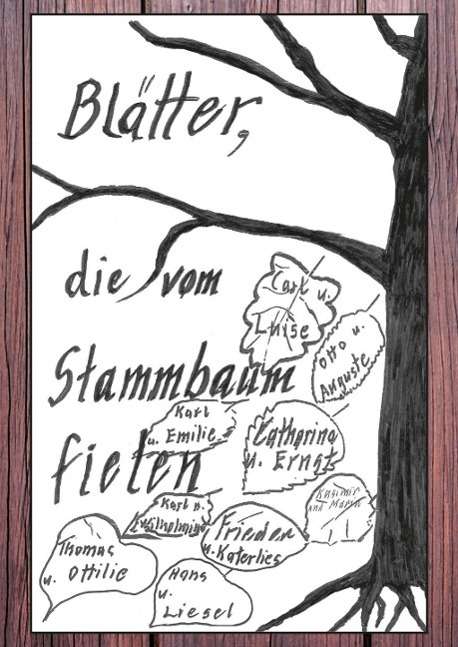 Blätter,
die vom
Carl u.
Luise
Otto u.
Auguste
Stammbaum
fielen
Karl
u. Emilie
Catharina
u. Ernst
Karl u.
Wilhelmine
Frieder
u. Katerlies
Kasimir
und Maria
Thomas
u.
Ottilie
Hans
u.
Liesel